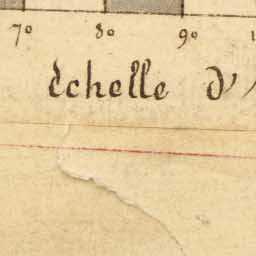 70 80 90
échelle d'